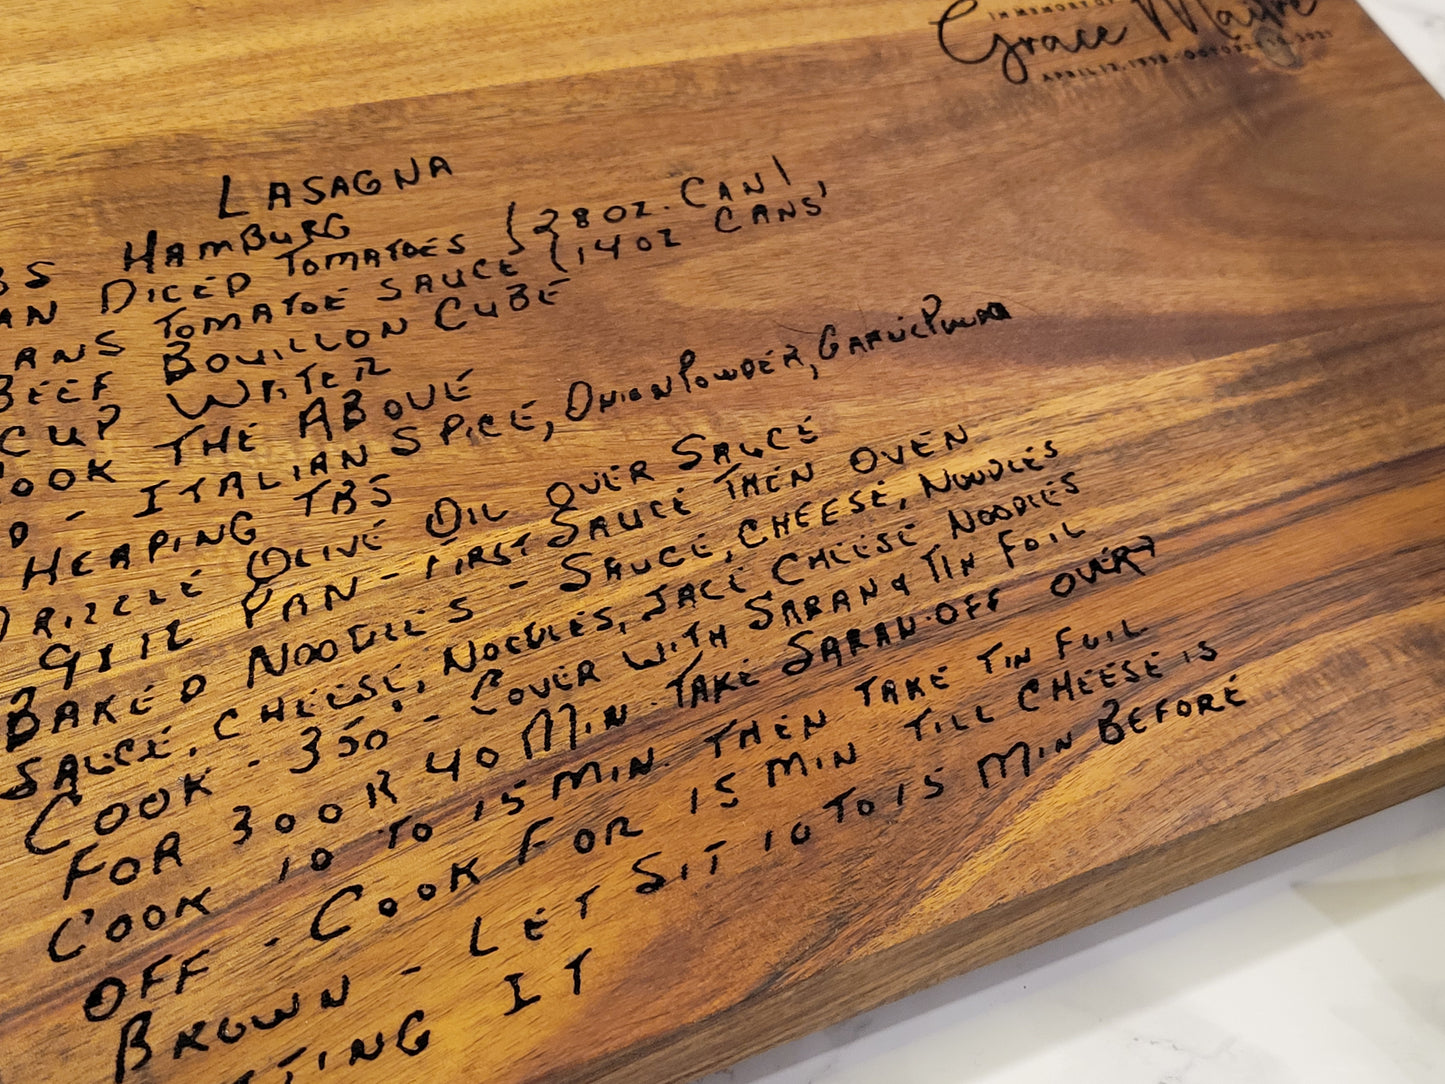 IN MEMORY OF
Grace
LASAGNA
BS HAMBURG
AN DICED TOMATOES {28 OZ. CAN 1
ANS TOMATOE SAUCE {14 OZ CANS'
BEEF BOUILLON CUBE
CUP WATER
OOK THE ABOVE
D - ITALIAN SPICE, ONION POWDER, GARLIC
HEAPING TBS
DRIZZLE OLIVE OIL OVER SAUCE
9X12 PAN - FIRST SAUCE THEN OVEN
BAKED NOODLES - SAUCE, CHEESE, NOODLES
SAUCE, CHEESE, NOODLES, SAUCE CHEESE NOODLES
COOK - 350° - COVER WITH SARAN & TIN FOIL
FOR 30 OR 40 MIN. TAKE SARAN OFF OVER
COOK 10 TO 15 MIN. THEN TAKE TIN FOIL
OFF - COOK FOR 15 MIN TILL CHEESE IS
BROWN - LET SIT 10 TO 15 MIN BEFORE
TING IT